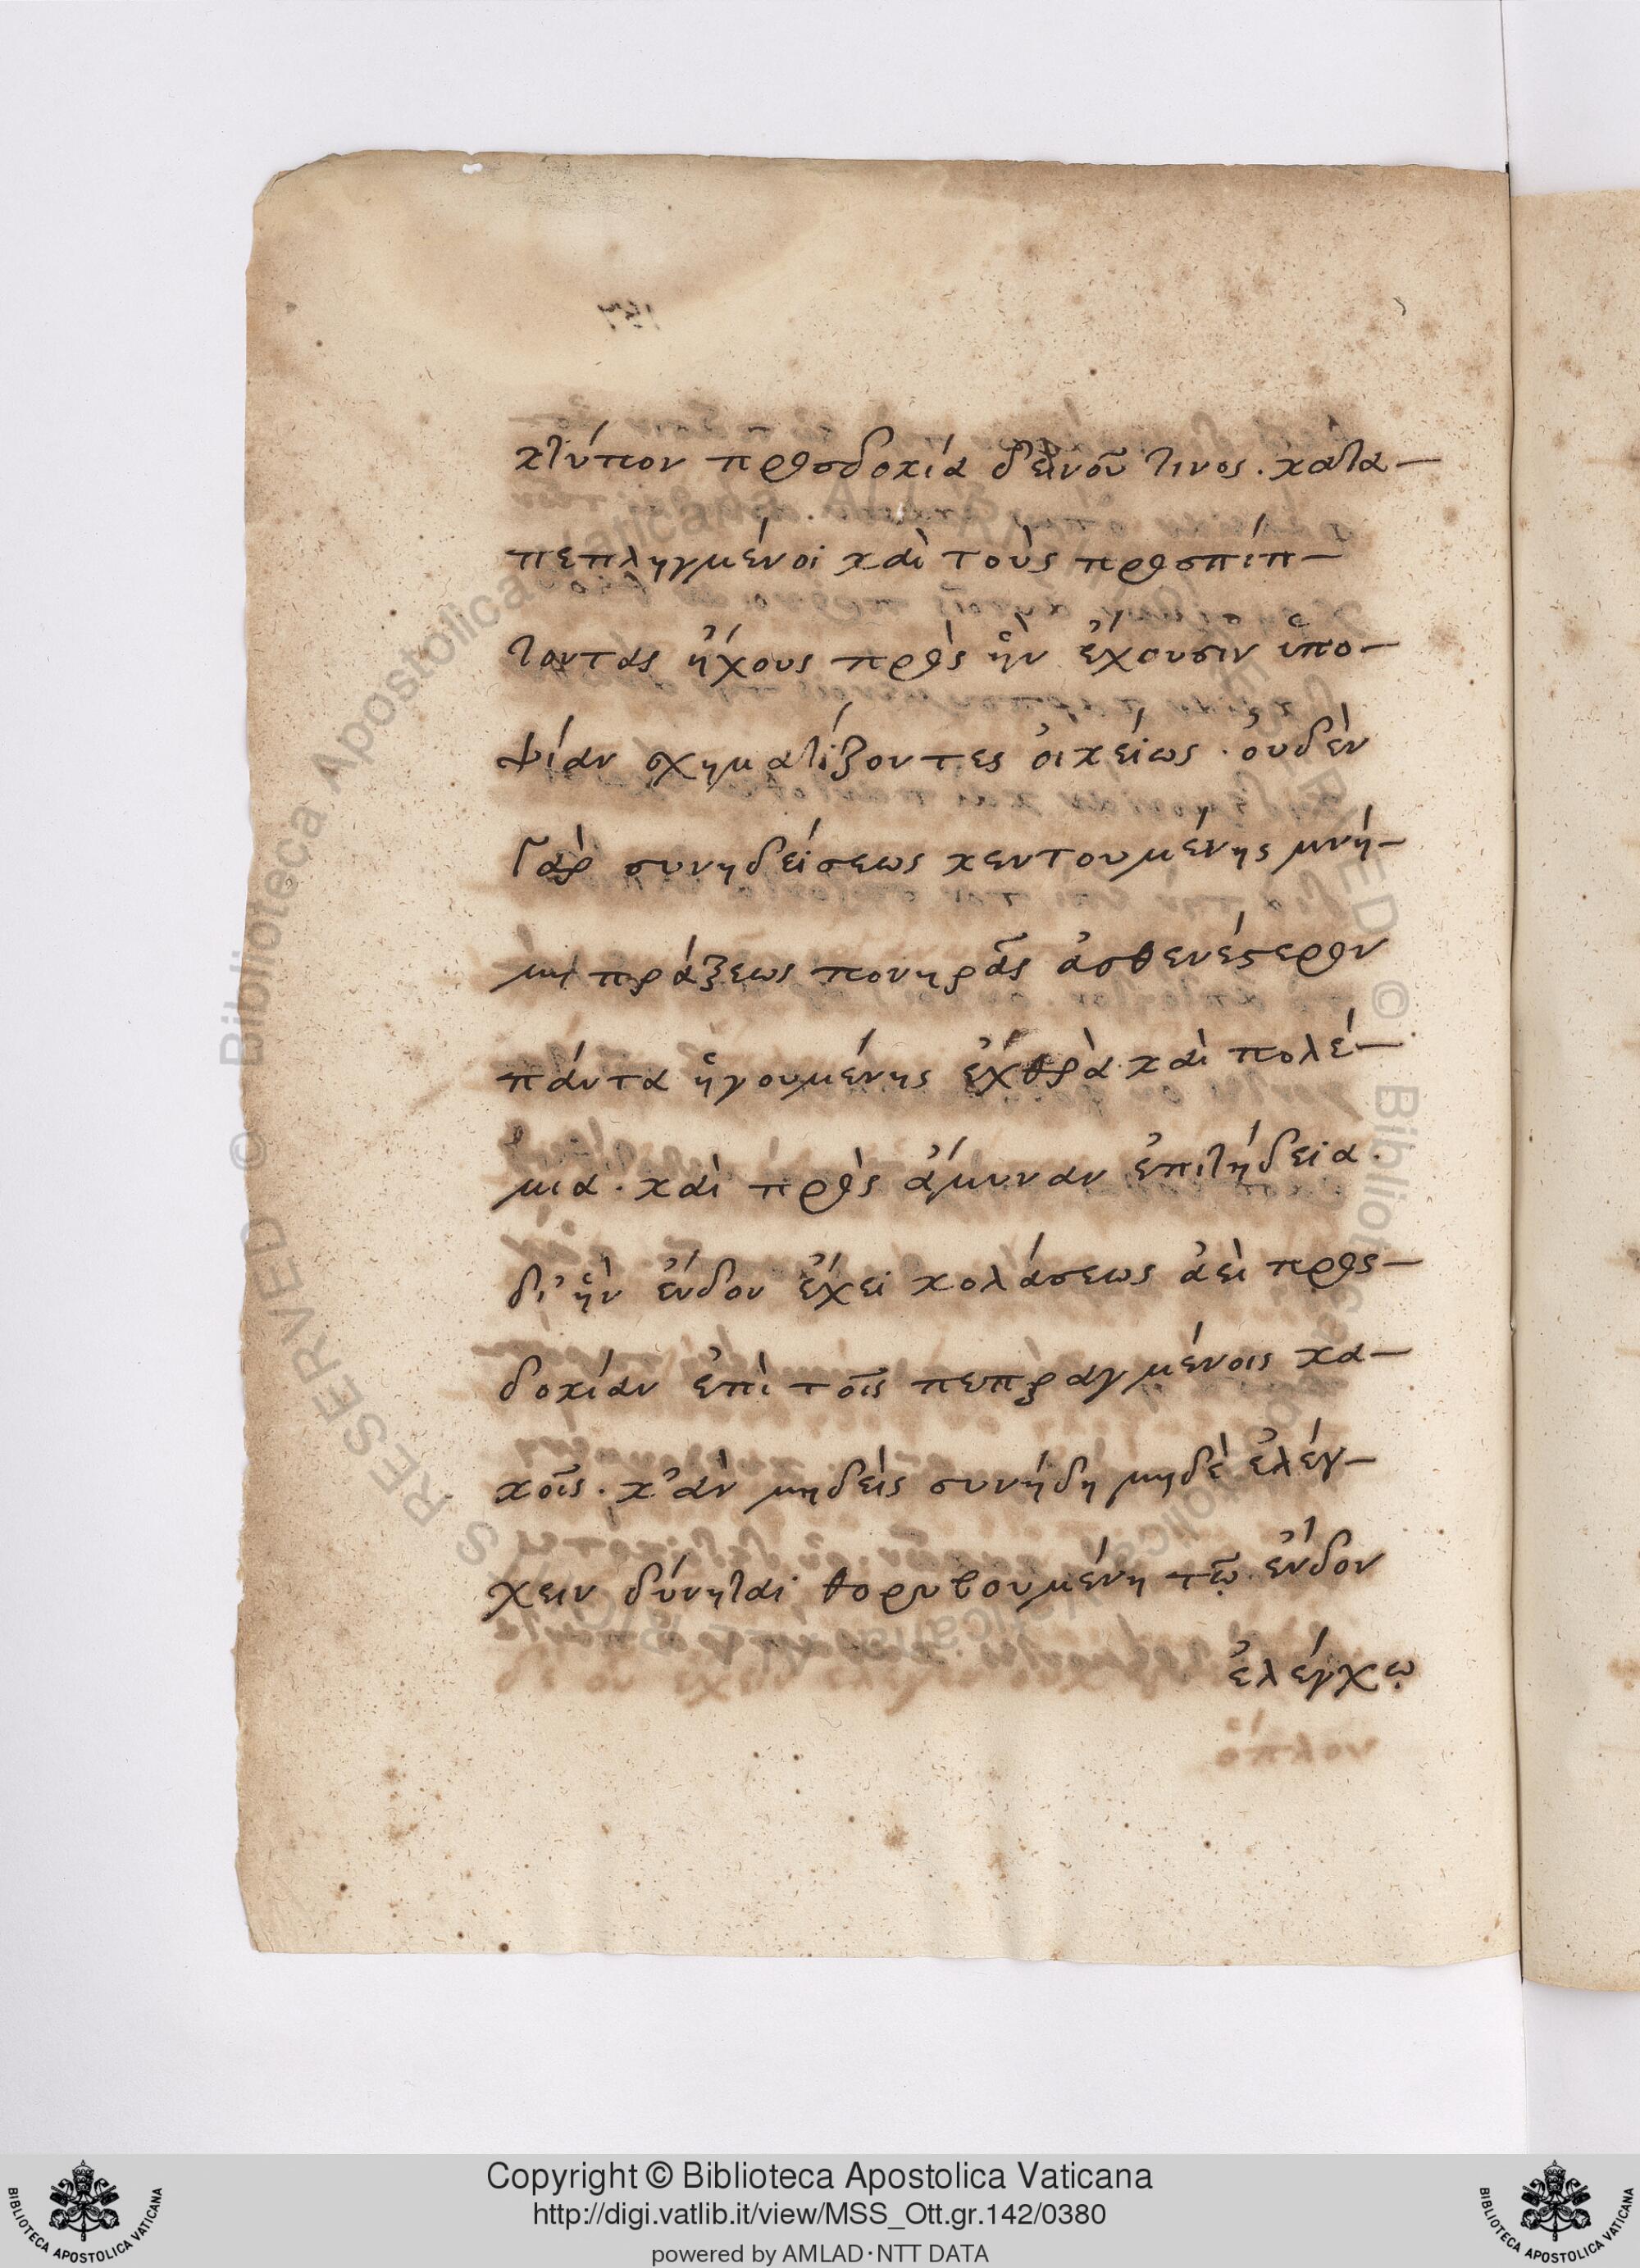 κτύπον προσδοκία δεινοῦ τινος. κατα-
πεπληγμένοι καὶ τοὺς προσπίπ-
τοντας ἤχους πρὸς ἣν ἔχουσιν ὑπο-
ψίαν σχηματίζοντες οἰκείως · οὐδὲν
γὰρ συνηδείσεως κεντουμένης μνή-
μη πράξεως πονηρᾶς ἀσθενέστερον
πάντα ἡγουμένης ἐχθρὰ καὶ πολέ-
μια · καὶ πρὸς ἄμυναν ἐπιτήδεια.
δι' ἣν ἔνδον ἔχει κολάσεως ἀεὶ προς-
δοκίαν ἐπὶ τοῖς πεπραγμένοις κα-
κοῖς. κ'ἂν μηδεὶς συνήδη μηδὲ ἐλέγ-
χειν δύνηται θορυβουμένη τῷ ἔνδον
ἐλέγχῳ
Copyright © Biblioteca Apostolica Vaticana
http://digi.vatlib.it/view/MSS_Ott.gr.142/0380
powered by AMLAD·NTT DATA
BIBLIOTECA APOSTOLICA VATICANA
BIBLIOTECA APOSTOLICA VATICANA